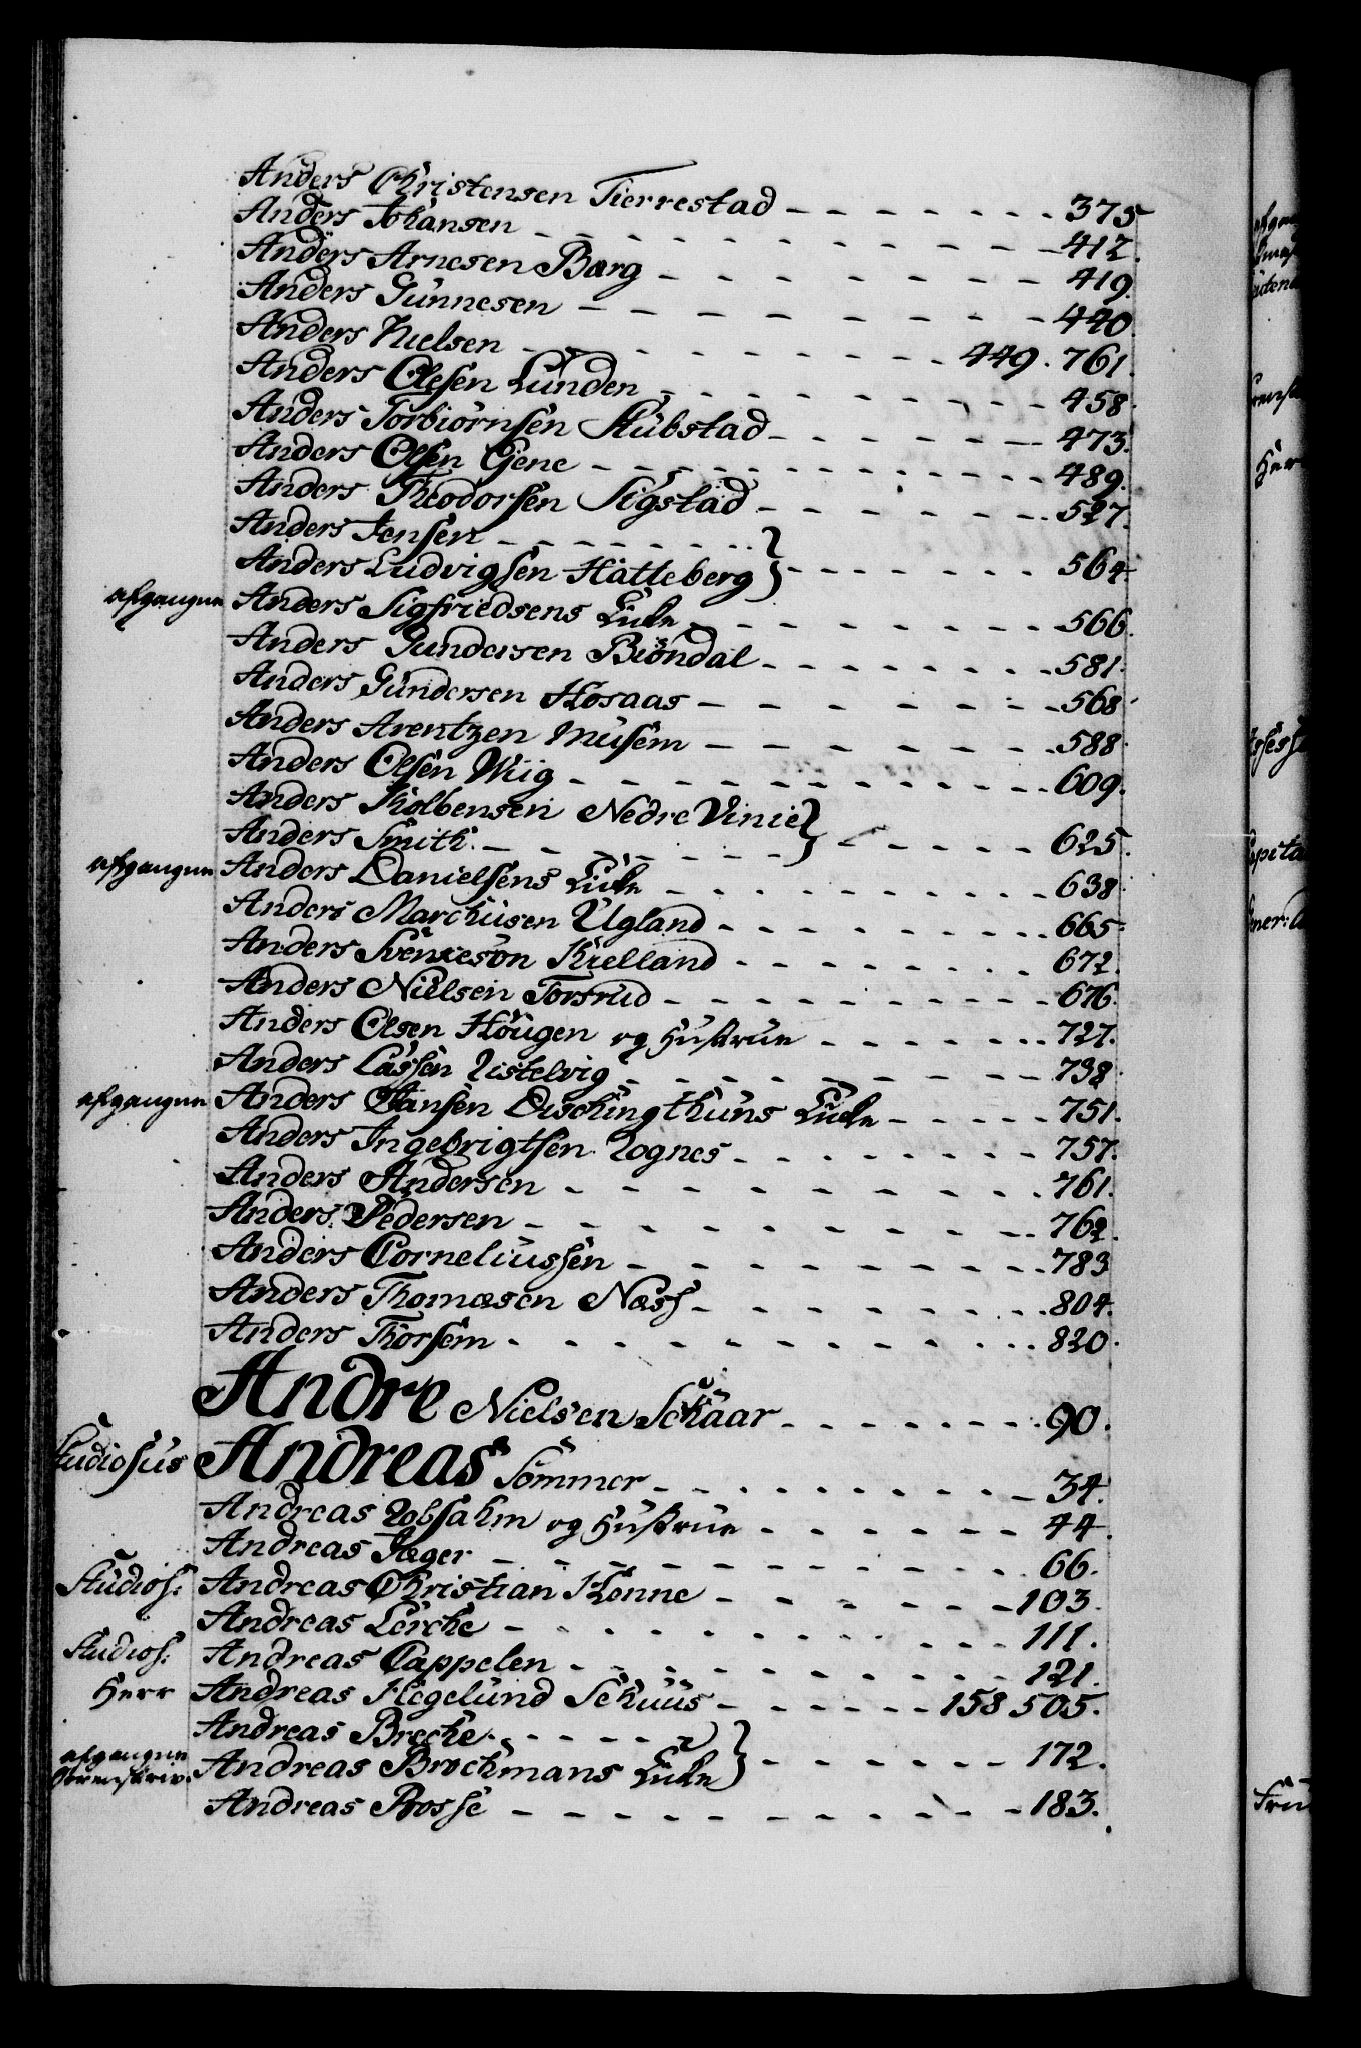 Anders Christensen Tierrestad - - - - - - - 375
Anders Johansen - - - - - - - - - - 412.
Anders Arnesen Bærg - - - - - - - 419.
Anders Gunnesen - - - - - - - - 440
Anders Nielsen - - - - - - - - 449. 761.
Anders Olesen Lunden - - - - - - - 458
Anders Torbiörnsen Skubstad - - - - - - 473.
Anders Olsen Gjene - - - - - - - - 489.
Anders Theodorsen Sigstad - - - - - - 527.
Anders Jensen - - - - - - - }
Anders Ludvigsen Hatteberg } - - - - - - 564
afgangne Anders Sigfriedsens Enke - - - - - - - 566.
Anders Gundersen Biöndal - - - - - - 581.
Anders Gundersen Hosaas - - - - - - 568
Anders Arentzen Musem - - - - - - 588
Anders Olsen Wiig - - - - - - - - 609.
Anders Kolbensen Nedre Vinie }
Anders Smith - - - - - - } - - - - - 625.
afgangne Anders Danielsens Enke - - - - - - - 638
Anders Marchusen Ugland - - - - - - - 665
Anders Svenkeson Kielland - - - - - - - 672.
Anders Nielsen Torsrud - - - - - - - - 676.
Anders Olsen Hougen og Hustrue - - - - - - 727.
Anders Lassen Ristelvig - - - - - - - - 738
afgangne Anders Hansen Dischingthuns Enke - - - - - 751.
Anders Ingebrigtsen Rognes - - - - - - - 757.
Anders Andersen - - - - - - - - 761.
Anders Pedersen - - - - - - - - 762.
Anders Corneliussen - - - - - - - - 783
Anders Thomasen Næss - - - - - - - 804.
Anders Thorsen - - - - - - - - 820.
Andre Nielsen Schaar - - - - - - - 90.
Studiosus Andreas Sommer - - - - - - - - 34.
Andreas Robsahm og Hustrue - - - - - - 44.
Andreas Jæger - - - - - - - - - 66.
Studios: Andreas Christian Hönne - - - - - - 103.
Andreas Lerche - - - - - - - - - 111.
Studios: Andreas Cappelen - - - - - - - - 121.
Herr Andreas Hegelund Schuus - - - - - - 158 505.
Andreas Breche - - - - - - }
afgangne Andreas Brochmans Enke } - - - - - - 172.
Andreas Posse - - - - - - - - - 183.